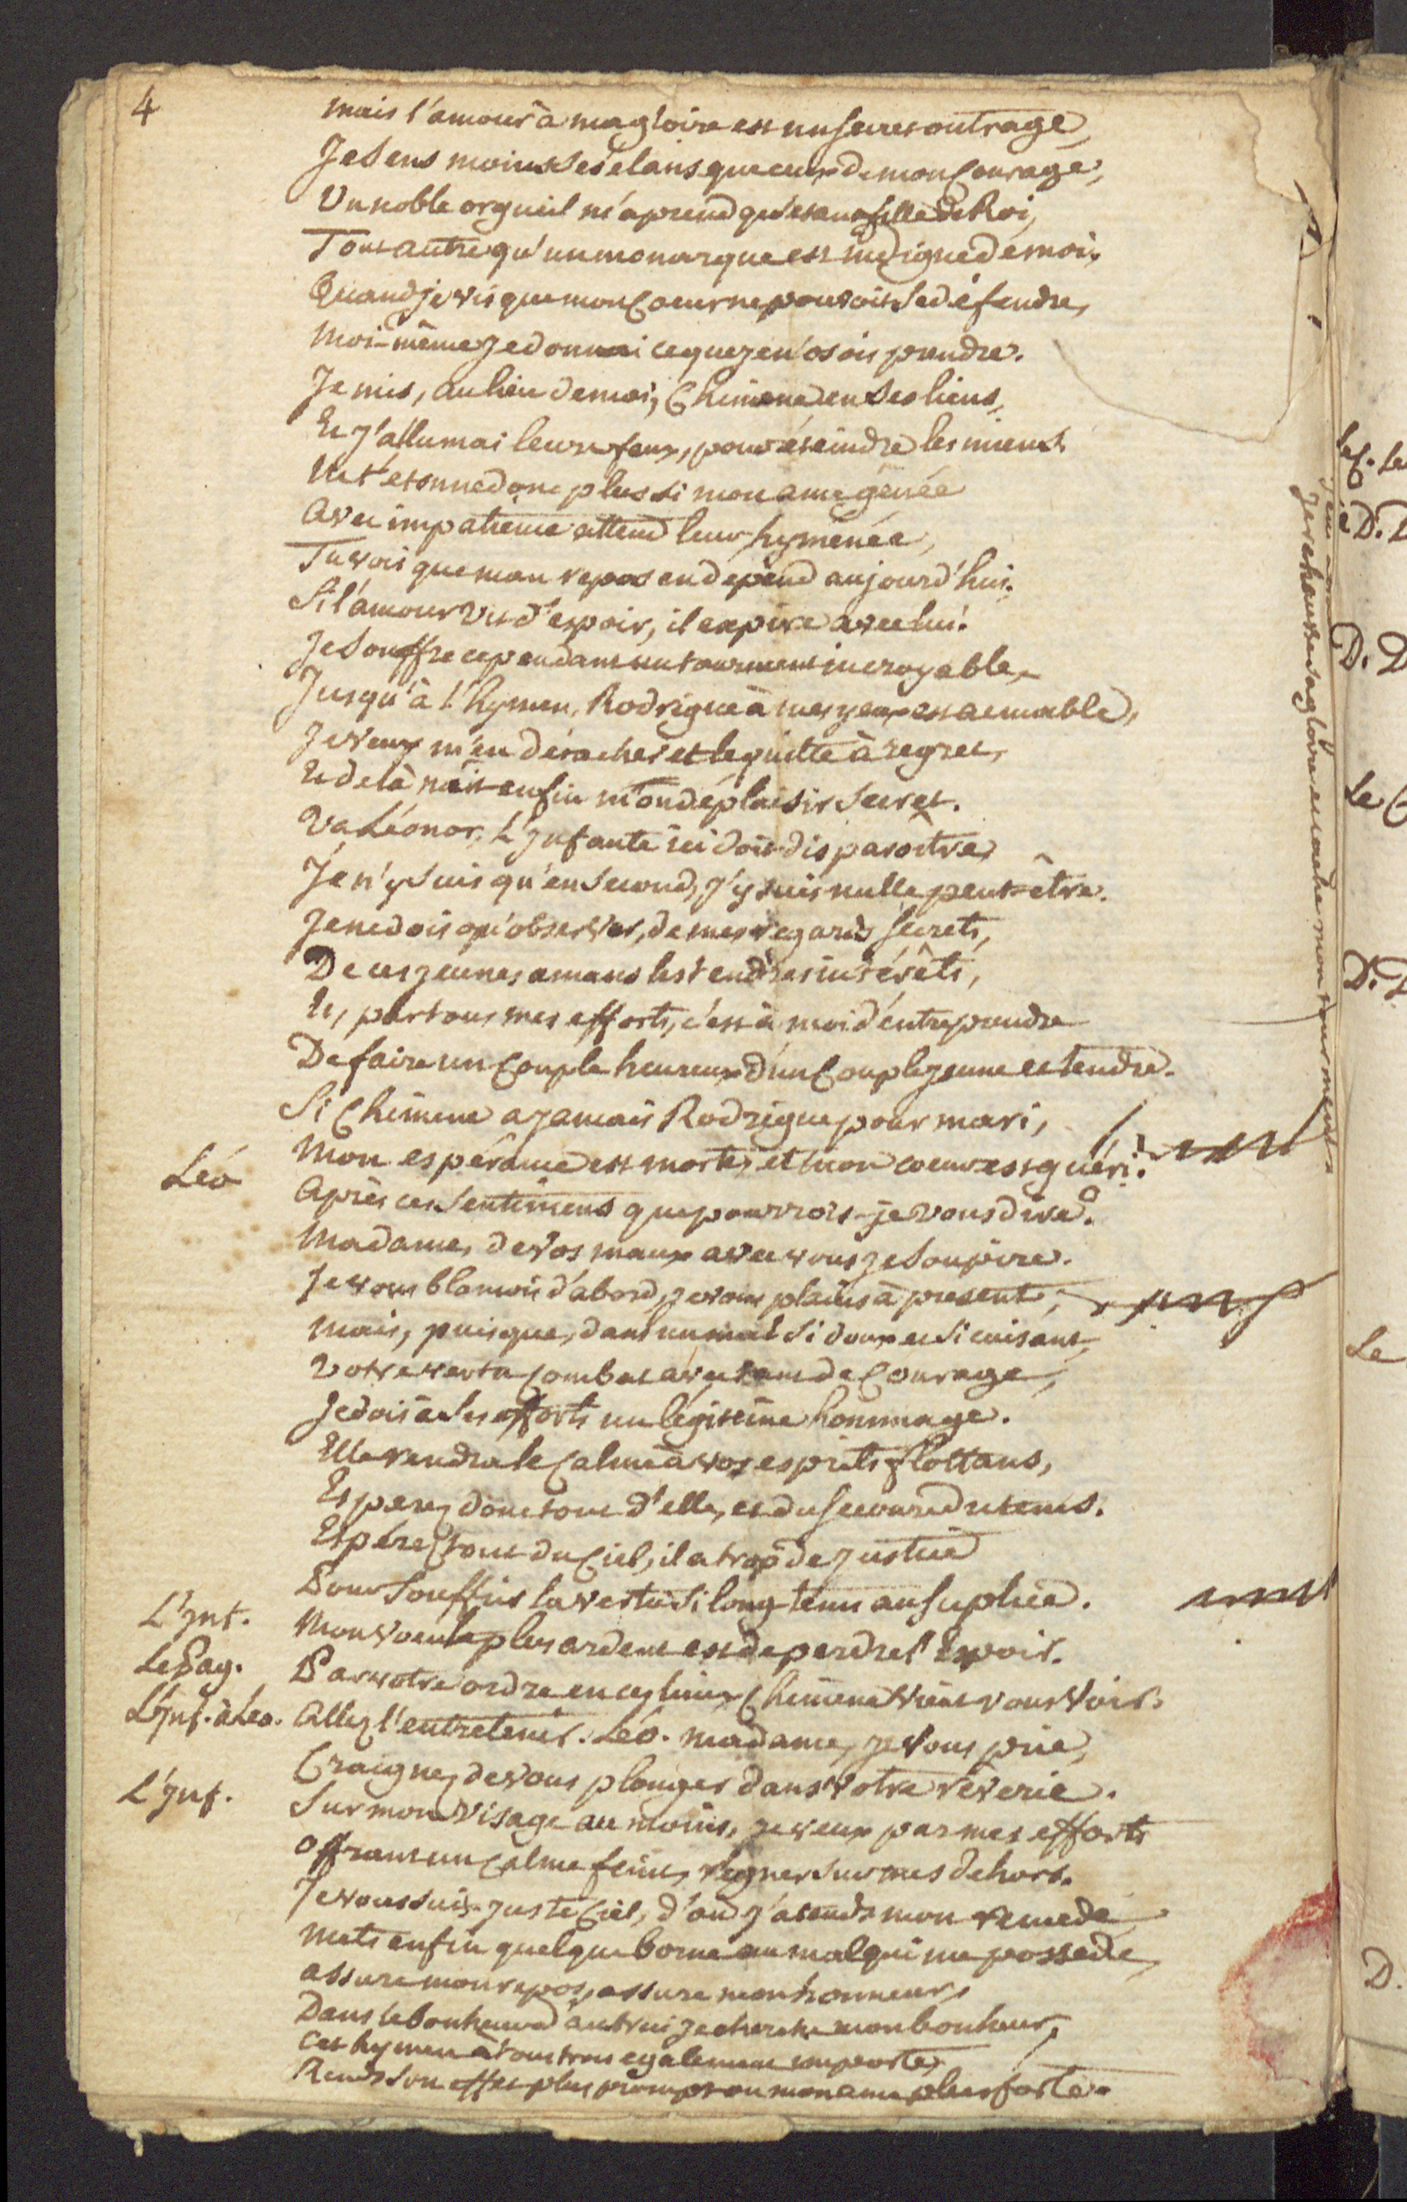 4
mais l'amour à ma gloire est un secret outrage,
Je sens moins ses élans que ceux de mon Courage,
Un noble orgueil m'aprend qu'etant fille de Roi,
Tout autre qu'un monarque est indigne de moi.
Quand je vis que mon Coeur ne pouvoit se défendre,
Moi-même je donnai ce que je n'osois prendre.
Je mis, au lieu de moi, Chimene en ses liens,
Et j'allumai leurs feux, pour éteindre les miens.
Ne t'etonne donc plus si mon ame gênée
Avec impatience attend leur hyménée,
Tu vois que mon repos en dépend aujourd'hui.
Si l'amour vit d'espoir, il expire avec lui.
Je souffre cependant un tourment incroyable,
Jusqu'à l'hymen, Rodrigue à mes yeux est aimable,
Je veux m'en détacher et le quitte à regret,
Et de là naît enfin mon déplaisir secret.
Va Léonor, L'Infante ici doit disparoître,
Je n'y suis qu'en second, j'y suis nulle peut-être.
Je ne dois qu'observer, de mes regards secrets,
De ces jeunes amans les tendres intérêts,
Et, par tous mes efforts, c'est à moi d'entreprendre
De faire un Couple heureux d'un Couple jeune et tendre.
Si Chimene a jamais Rodrigue pour mari,
Mon espérance est morte, et mon coeur est guéri.
Léo Après ces sentimens que pourrois-je vous dire?
Madame, de vos maux avec vous je soupire.
Je vous blamois d'abord, je vous plains à present;
Mais, puisque, dans un mal si doux et si cuisant,
Votre vertu Combat avec tant de Courage,
Je dois à ses efforts un légitime hommage.
Elle rendra le Calme à vos esprits flottans,
Esperez donc tout d'elle, et du secours du tems.
Espérez tout du Ciel, il a trop de justice
Pour souffrir la vertu si long-tems au suplice.
L'Inf. Mon voeu le plus ardent est de perdre l'Espoir.
Le Pag. Par votre ordre en ces lieux Chimene vient vous voir.
L'Inf. à Leo. Allez l'entretenir. Léo. Madame, je vous prie,
Craignez de vous plonger dans votre rêverie.
L'Inf. Sur mon visage au moins, je veux par mes efforts
Offrant un Calme feint, régner sur mes dehors.
Je vous suis. Juste Ciel, d'où j'attends mon remede
Mets enfin quelque borne au mal qui me possede,
assure mon repos, assure mon honneur,
Dans le bonheur d'autrui je cherche mon bonheur,
Cet hymen à tous trois egalement importe,
Rends son effet plus prompt ou mon ame plus forte.
Je rehausse sa gloire et cache mon tourment.
Le C. Le
D. D
D. D
Le C
D. D
Le
D.